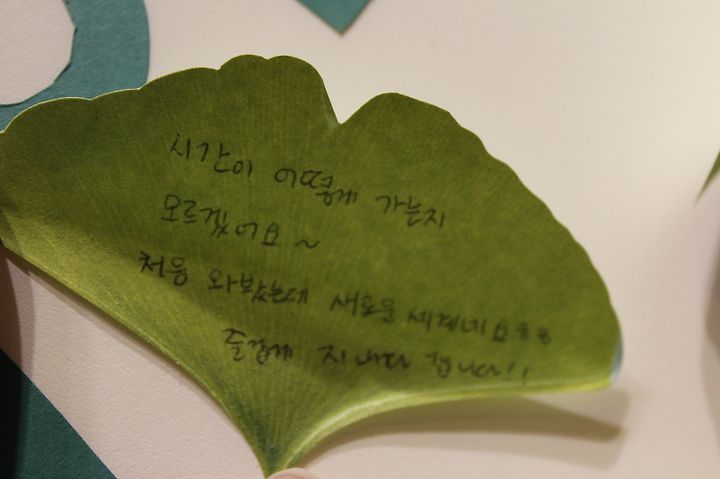 시간이 어떻게 가는지
모르겠어요~
처음 와봤는데 새로운 세계네요ㅎㅎ
즐겁게 지내다 갑니다!!